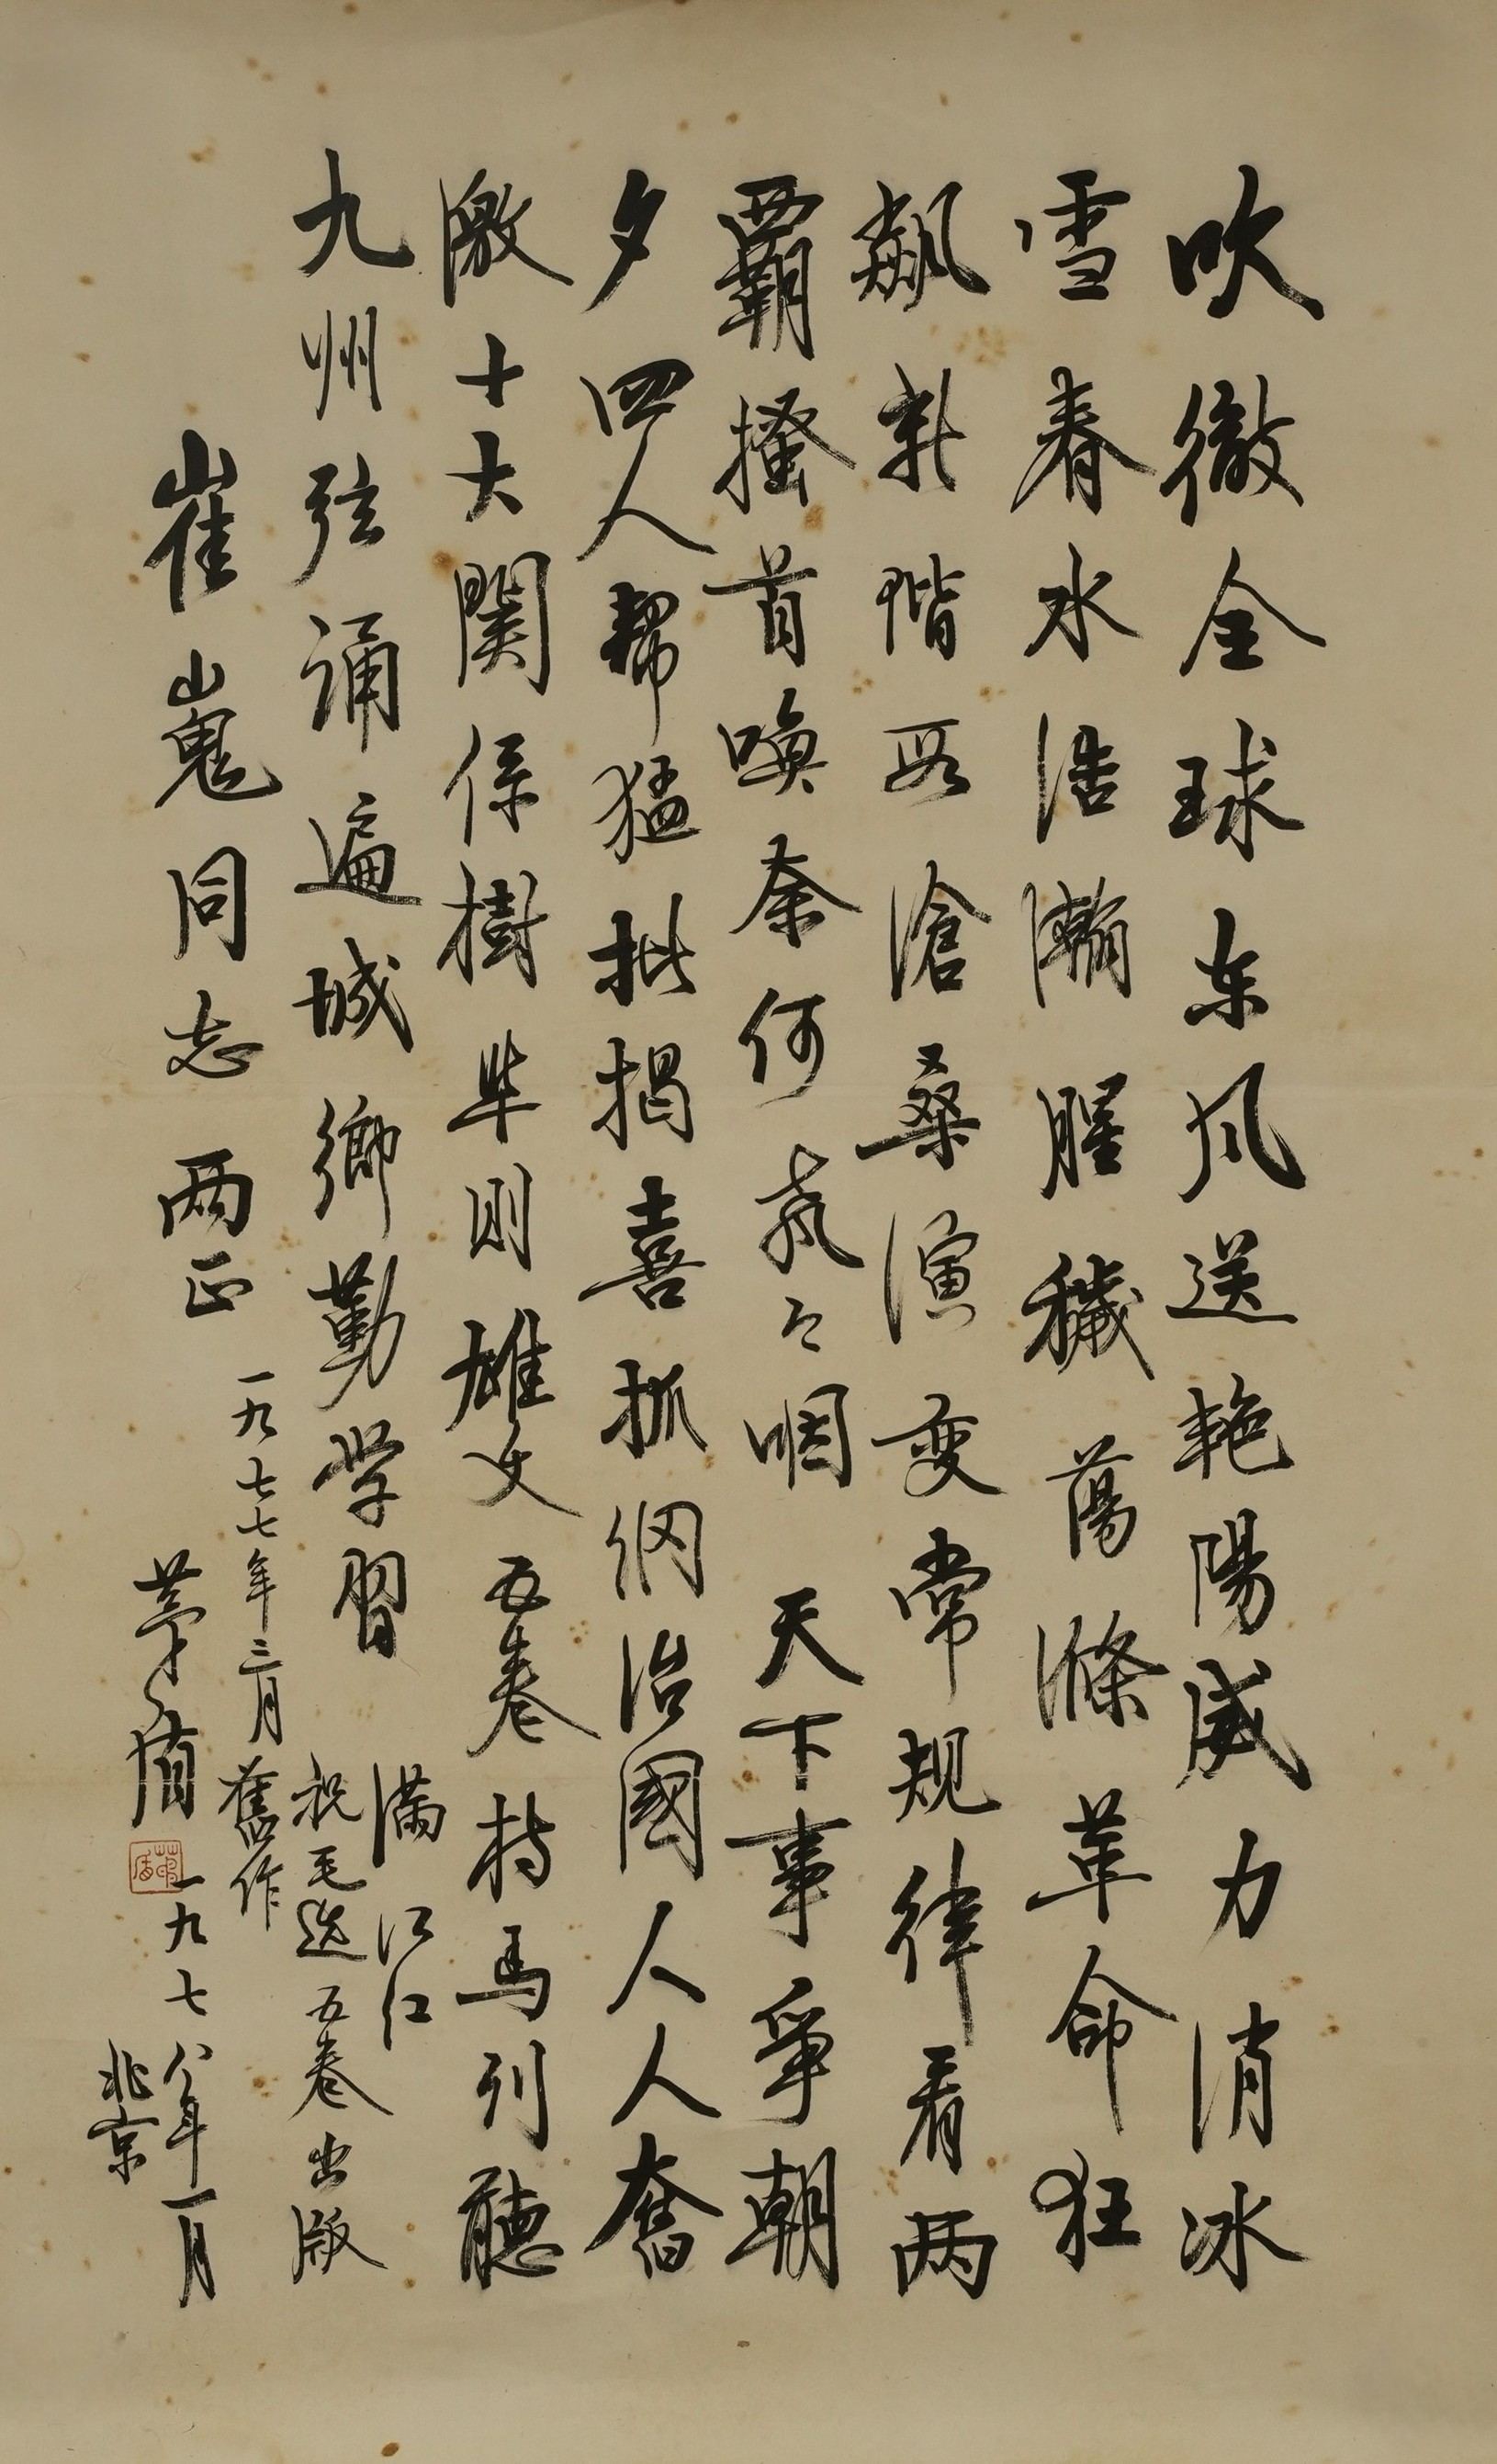 吹徹全球东风送艳陽威力消冰
雪春水浩瀚腥穢蕩滌革命狂
飙新階段滄桑演变常规律看两
覇搔首唤奈何焭々咽天下事爭朝
夕四人帮猛批揭喜抓纲治國人人奮
激十大関係樹準则雄文五卷持馬列聽
九州弦诵遍城鄉勤学習
满江红
祝毛选五卷出版
一九七七年三月舊作
崔嵬同志两正
茅盾
一九七八年一月
北京
茅盾